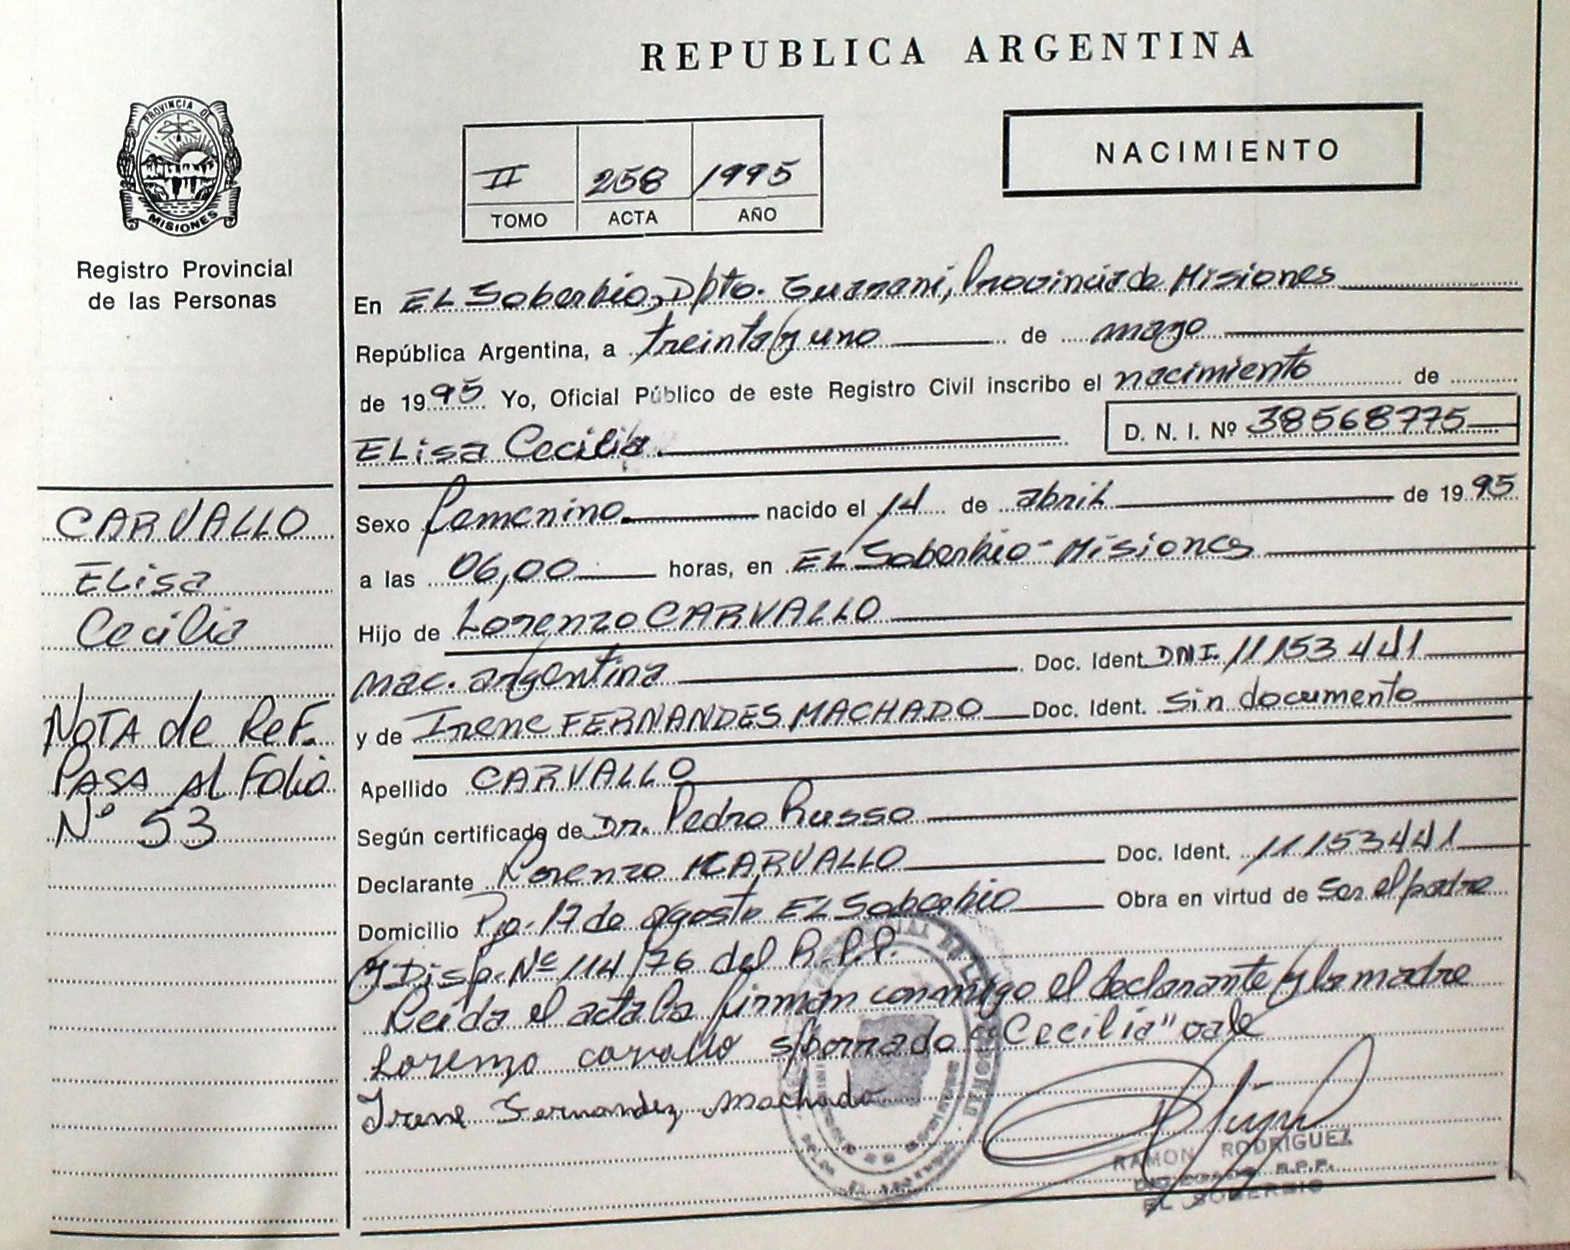 REPUBLICA ARGENTINA
PROVINCIA DE
MISIONES
Registro Provincial
de las Personas
II 258 1995
TOMO ACTA AÑO
NACIMIENTO
En EL Soberbio, Dpto. Guarani, Provincia de Misiones
República Argentina, a treinta y uno de mayo
de 1995 Yo, Oficial Público de este Registro Civil inscribo el nacimiento de
ELisa Cecilia. D. N. I. Nº 38568775
Sexo femenino nacido el 14 de abril de 1995
a las 06,00 horas, en EL Soberbio - Misiones
Hijo de Lorenzo CARVALLO
nac. argentina Doc. Ident. DNI. 11153441
y de Irene FERNANDES MACHADO Doc. Ident. sin documento
Apellido CARVALLO
Según certificado de Dr. Pedro Russo
Declarante Lorenzo CARVALLO Doc. Ident. 11153441
Domicilio 17 de agosto EL Soberbio Obra en virtud de ser el padre
y Disp. Nº 114/76 del R.P.P.
Leida el acta la firman conmigo el declarante y la madre
Lorenzo carvallo s/borrado "Cecilia" vale
Irene Fernandez machado
RAMON RODRIGUEZ
R.P.P.
EL SOBERBIO
CARVALLO
ELisa
Cecilia
NOTA de ReF.
PASA Al Folio
Nº 53